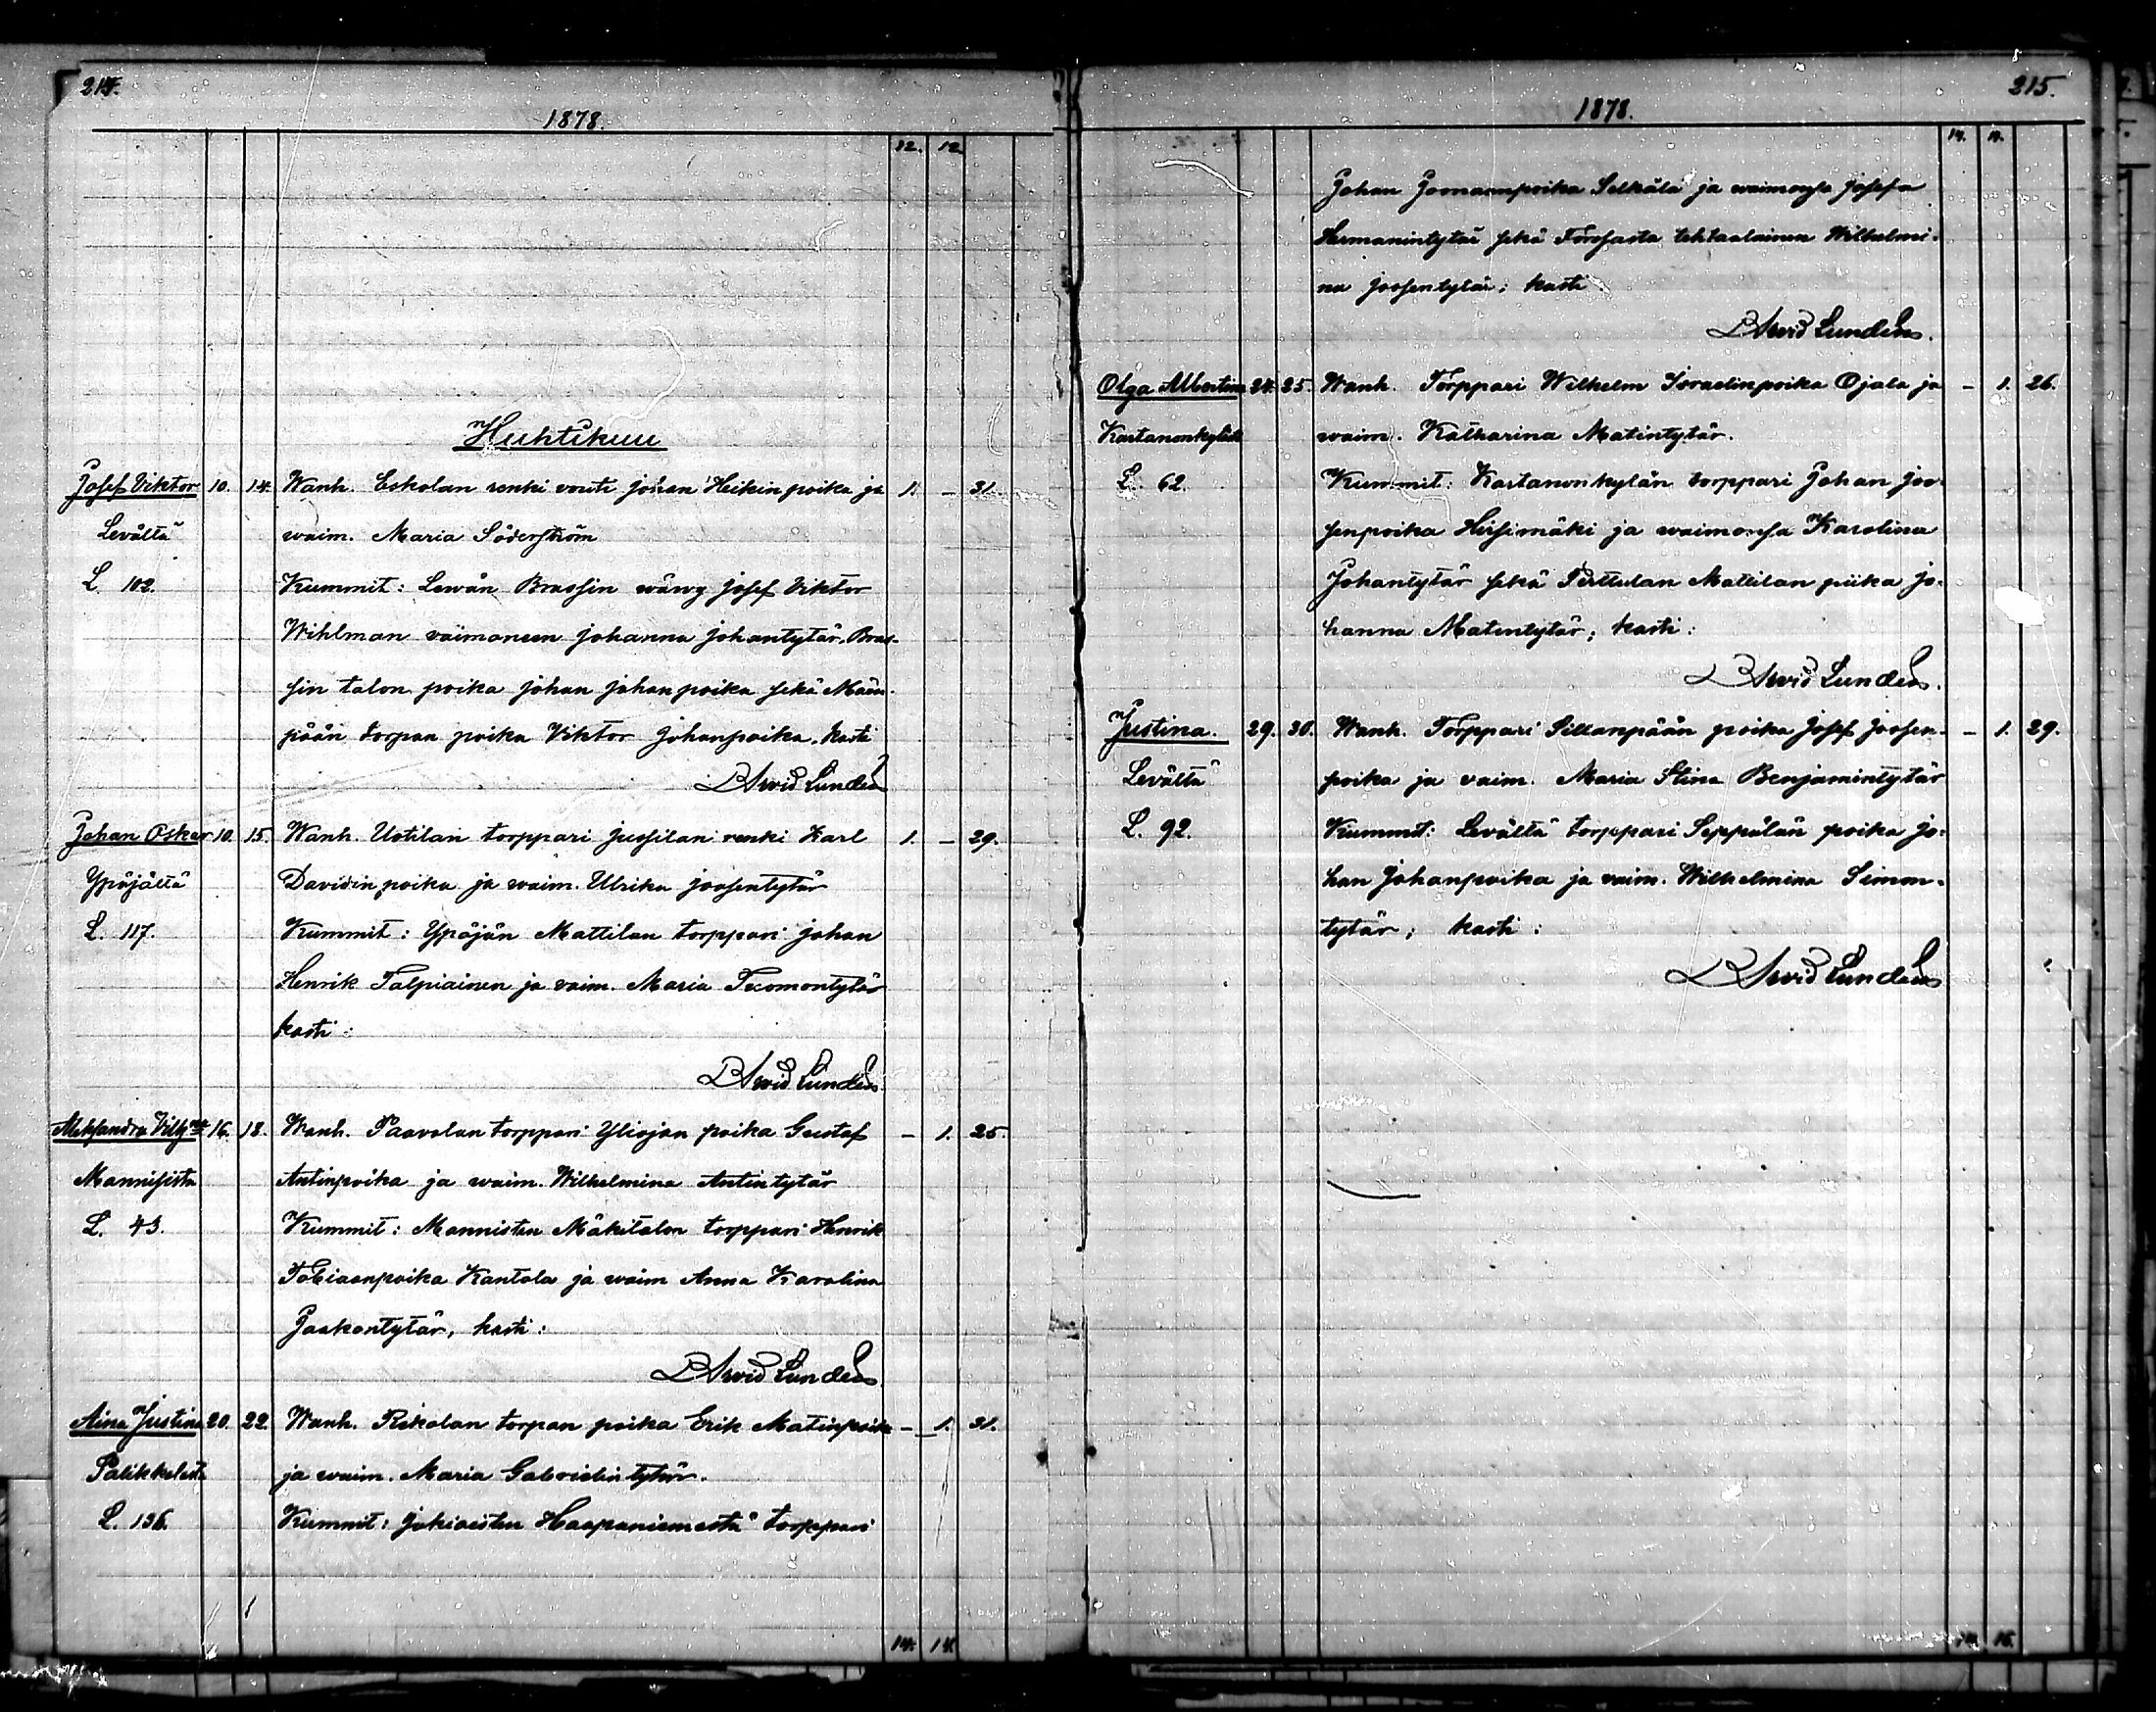 214.
1878.
12. 12.
Huhtikuu
Josef Viktor 10. 14. Wanh. Eskolan renki vouti Johan Heikinpoika ja 1. – 31.
Levältä waim. Maria Söderström
L. 102. Kummit: Lewän Brassin wäwy Josef Viktor
Wihlman vaimoneen Johanna Johantytär, Bras-
sin talon poika Johan Johanpoika sekä
pään torpan poika Viktor Johanpoika, kasti
Arvid Lundén
Johan Oskar 10. 15. Wanh. Uotilan torppari Jussilan renki Karl 1. – 29.
Ypäjältä Davidinpoika ja waim. Ulrika Joosentytär
L. 117. Kummit: Ypäjän Mattilan torppari Johan
Henrik Talpiainen ja vaim. Maria Tuomontytär
kasti:
Arvid Lundén
Aleksandra Vilh:na 16. 18. Wanh. Paavolan torppari Yliojan poika Gustaf – 1. 25.
Mannisista Antinpoika ja waim. Wilhelmina Antintytär
L. 43. Kummit: Mannisten Mäkitalon torppari Henrik
Tobiaanpoika Kantola ja waim Anna Karolina
Jaakontytär, kasti:
Arvid Lundén
Aina Justina 20. 22. Wanh. Rekolan torpan poika Erik Matinpoika – 1. 31.
Palikkalasta ja waim. Maria Gabrielintytär.
L. 136. Kummit: Jokioisten Haapaniemestä torppari
14. 14.
215.
1878.
14. 14.
Johan Joonaanpoika Selkälä ja waimonsa Josefa
Hermanintytär sekä Forssasta tehtaalainen Wilhelmi-
na Joosentytär; kasti
Arvid Lundén.
Olga Albertina 24. 25. Wanh. Torppari Wilhelm Israelinpoika Ojala ja – 1. 26.
Kartanonkylä waim. Katharina Matintytär.
L. 62. Kummit: Kartanonkylän torppari Johan Joo-
senpoika Hirsimäki ja waimonsa Karolina
Johantytär sekä Perttulan Mattilan piika Jo-
hanna Matintytär; kasti:
Arvid Lundén.
Justina. 29. 30. Wanh. Torppari Sillanpään poika Josef Joosen- – 1. 29.
Levältä poika ja vaim. Maria Stina Benjamintytär
L. 92. Kummit: Levältä torppari Seppälän poika Jo-
han Johanpoika ja vaim. Wilhelmina Simon-
tytär; kasti:
Arvid Lundén
14. 16.